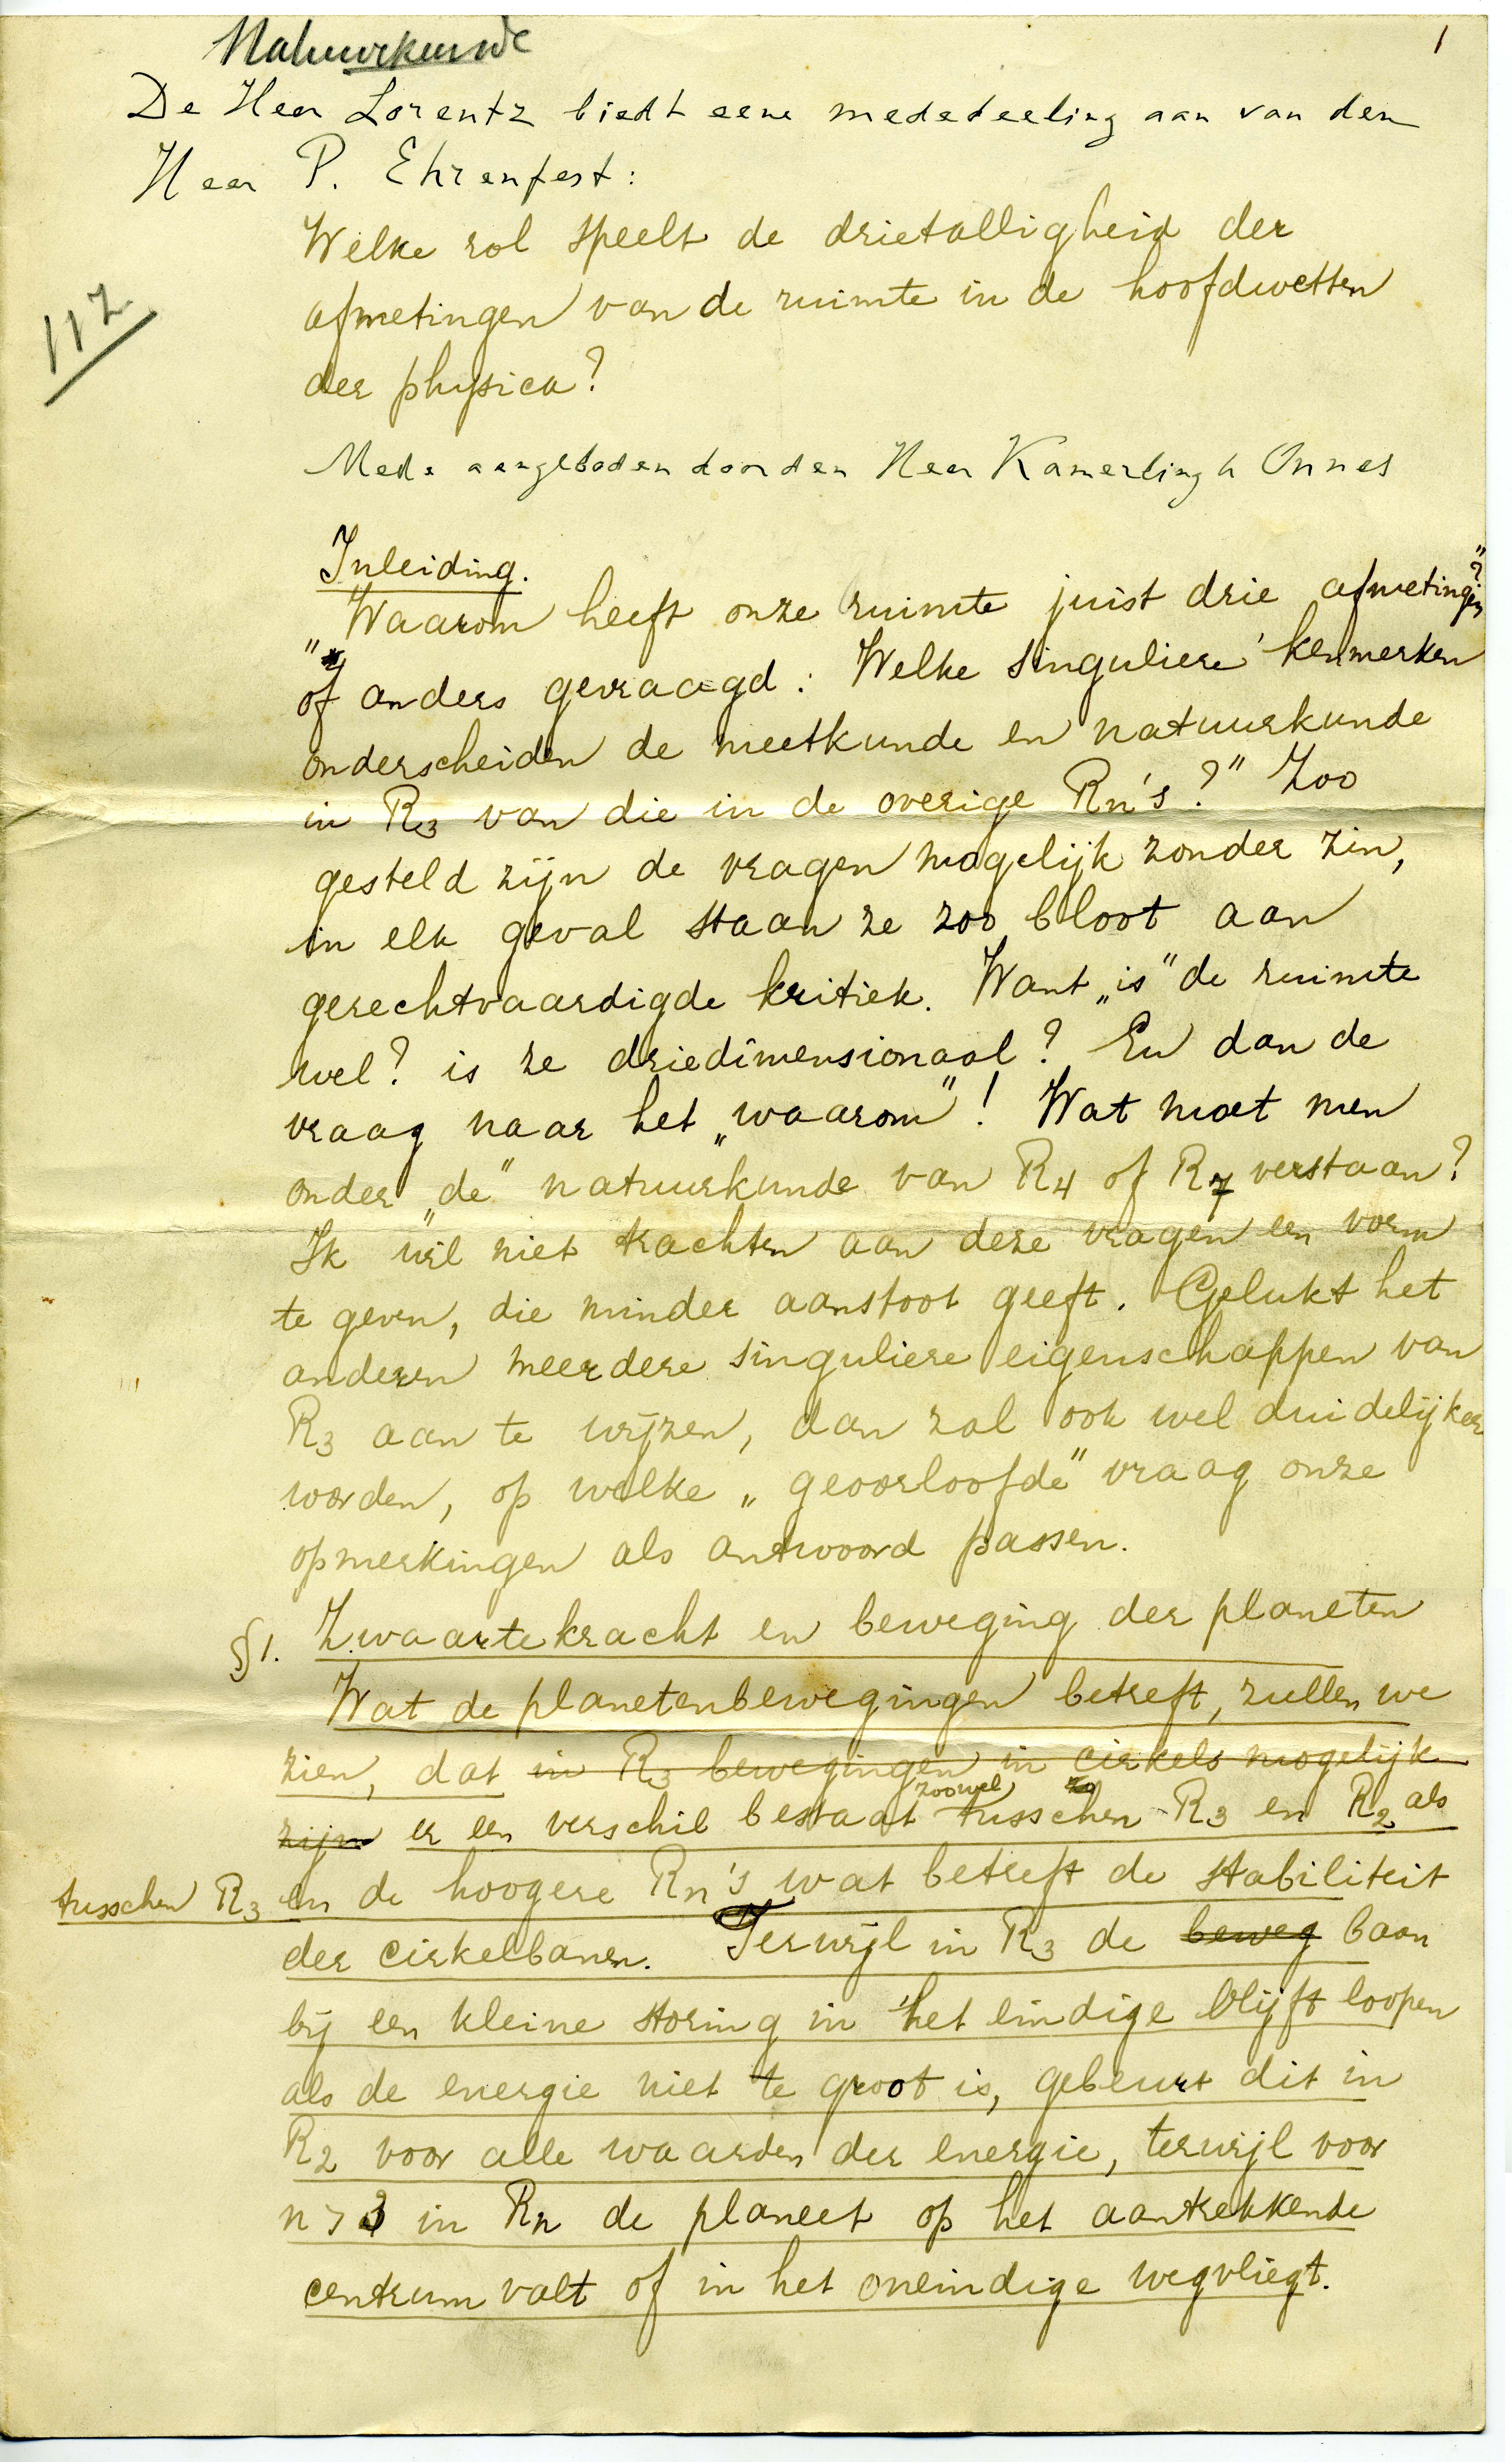 Natuurkunde
1
De Heer Lorentz biedt eene mededeeling aan van den
Heer P. Ehrenfest:
Welke rol speelt de drietalligheid der
afmetingen van de ruimte in de hoofdwetten
der physica?
112
Mede aangeboden door den Heer Kamerlingh Onnes
Inleiding.
„Waarom heeft onze ruimte juist drie afmetingen?"
of anders gevraagd: Welke singuliere kenmerken
onderscheiden de meetkunde en natuurkunde
in R3 van die in de overige Rn's?" Zoo
gesteld zijn de vragen mogelijk zonder zin,
in elk geval staan ze zoo bloot aan
gerechtvaardigde kritiek. Want „is" de ruimte
wel? is ze driedimensionaal? En dan de
vraag naar het „waarom"! Wat moet men
onder „de" natuurkunde van R4 of R7 verstaan?
Ik wil niet trachten aan deze vragen een vorm
te geven, die minder aanstoot geeft. Gelukt het
anderen meerdere singuliere eigenschappen van
R3 aan te wijzen, dan zal ook wel duidelijker
worden, op welke „geoorloofde" vraag onze
opmerkingen als antwoord passen.
§1. Zwaartekracht en beweging der planeten
Wat de planetenbewegingen betreft, zullen we
zien, dat in R3 bewegingen in cirkels mogelijk
zijn er een verschil bestaat zoowel tusschen R3 en R2 als
tusschen R3 en de hoogere Rn's wat betreft de stabiliteit
der cirkelbanen. Terwijl in R3 de beweg baan
bij een kleine storing in het eindige blijft loopen
als de energie niet te groot is, gebeurt dit in
R2 voor alle waarden der energie, terwijl voor
n > 3 in Rn de planeet op het aantrekkende
centrum valt of in het oneindige wegvliegt.